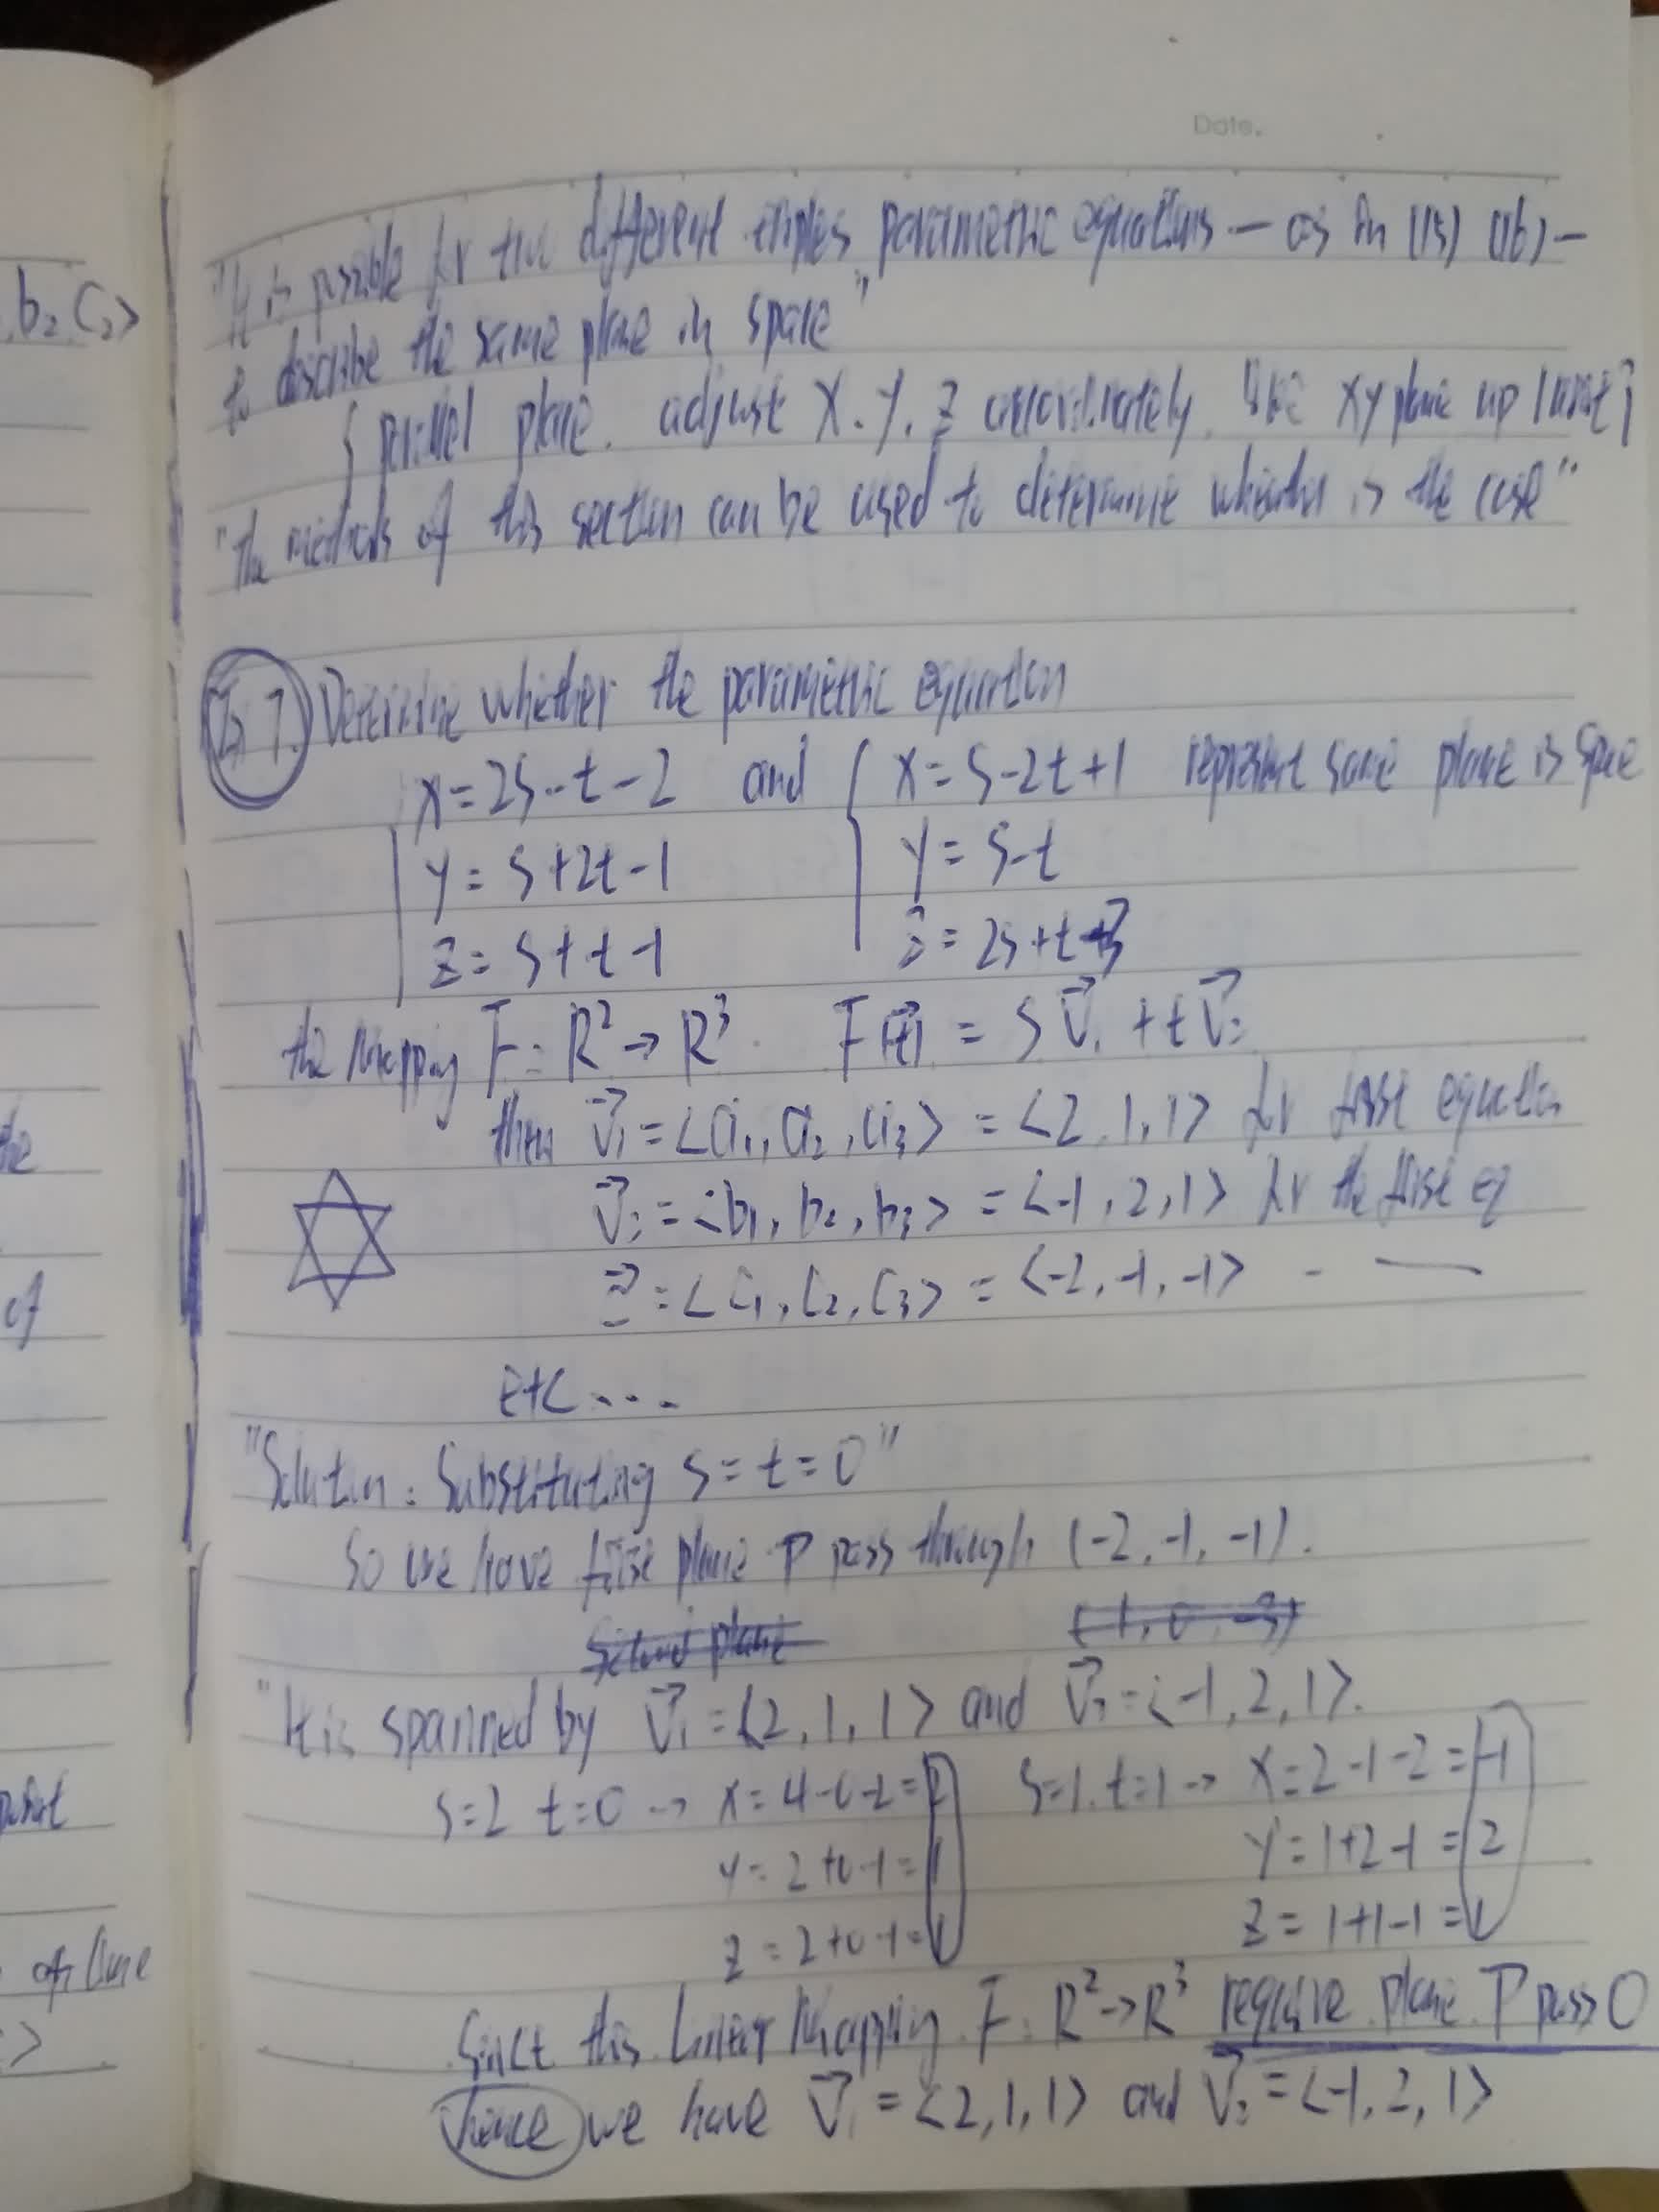 b₂, C₂>
the
of
of line
>
Date.
"It is possible for two different triples parametric equations — as in (15) (16) —
to describe the same plane in space"
{ parallel plane. adjust X. Y. Z like XY plane up
"the methods of this section can be used to determine whether is the case"
7. Determine whether the parametric equation
x = 2s - t - 2 and { x = s - 2t + 1 represent same plane is space
y = s + 2t - 1 y = s - t
z = s + t - 1 z = 2s + t
the mapping F: R² → R³. F = s v⃗₁ + t v⃗₂
then v⃗₁ = <a₁, a₂, a₃> = <2, 1, 1> for first equation
v⃗₂ = <b₁, b₂, b₃> = <-1, 2, 1> for the first eq
= <C₁, C₂, C₃> = <-2, -1, -1> - —
Etc ...
"Solution: Substituting s = t = 0"
So we have first plane P pass through (-2, -1, -1).
Second plane (1, 0, -3)
"It is spanned by v⃗₁ = <2, 1, 1> and v⃗₂ = <-1, 2, 1>.
s=2 t=0 → x = 4-0-2 = 2 s=1. t=1 → x = 2-1-2 = -1
y = 2+0-1 = 1 y = 1+2-1 = 2
z = 2+0-1 = 1 z = 1+1-1 = 1
Since this Linear Mapping F: R² → R³ require plane P pass O
hence we have v⃗₁ = <2, 1, 1> and v⃗₂ = <-1, 2, 1>